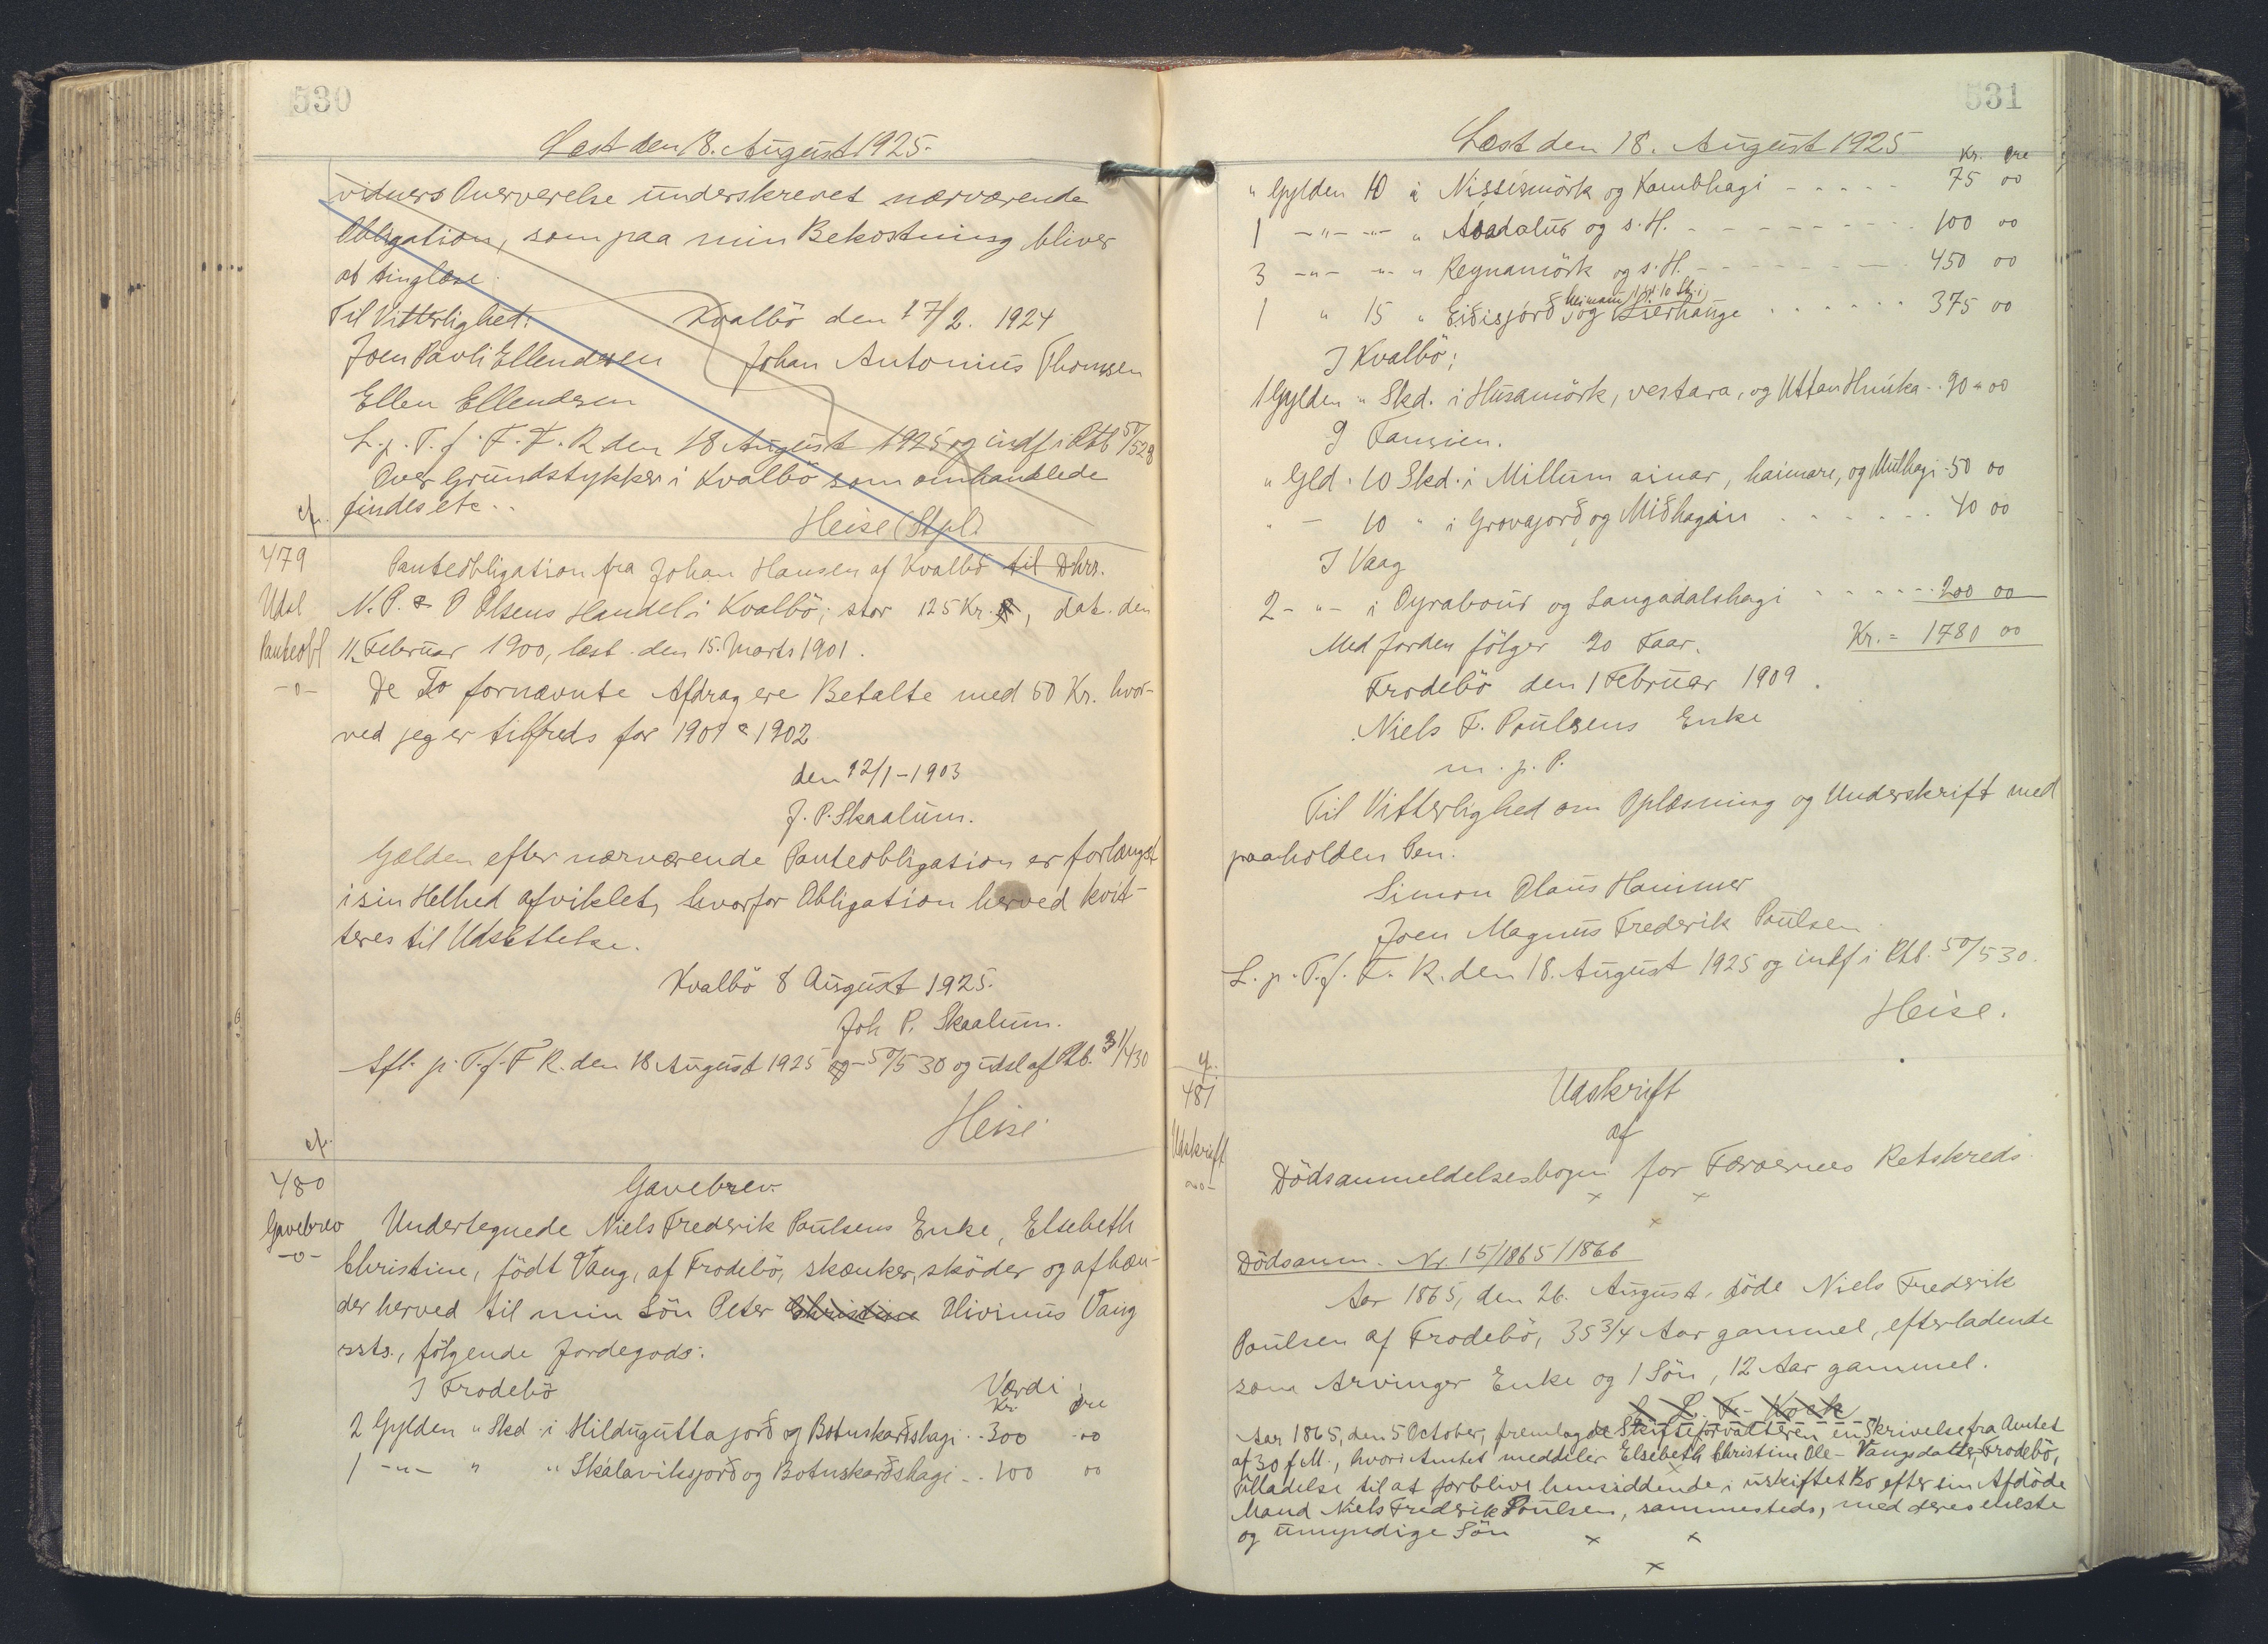 530
Læst den 18. August 1925.
vidners Overværelse underskrevet nærværende
Obligation, som paa min Bekostning bliver
at tinglæse.
Til Vitterlighed: Kvalbö den 17/2. 1924
Joen Pavli Ellendsen Johan Antonius Thomsen
Ellen Ellendsen
L. p. T. f. F. R den 18 August 1925 og indf i Ptb 50/528
Over Grundstykker i Kvalbö som omhandlede
findes etc..
Heise (Stpl)
479
Udsl
Panteobl
-o-
Panteobligation fra Johan Hansen af Kvalbö til Dhrr.
N. P. & O Olsens Handel i Kvalbö; stor 125 Kr., dat. den
11 Februar 1900, læst den 15. Marts 1901.
De To fornævnte Afdrag ere Betalte med 50 Kr. hvor-
ved jeg er tilfreds for 1901 & 1902
den 12/1-1903
J. P. Skaalum.
Gælden efter nærværende Panteobligation er forlængst
i sin Helhed afviklet, hvorfor Obligation herved kvit-
teres til Udslettelse.
Kvalbö 8 August 1925.
Joh P. Skaalum.
Afl. p. T. f. F R. den 18 August 1925 og 50/530 og udsl af Ptb. 31/430
Heise
480
Gavebrev
-o-
Gavebrev.
Undertegnede Niels Frederik Poulsens Enke, Elsebeth
Christine, födt Vang, af Frodebö, skænker, sköder og afhæn-
der herved til min Sön Peter Christine Olivinus Vang
ssts., fölgende Jordegods:
I Frodebö Værdi:
Kr. Öre
2 Gylden " Skd i Hildugutta jorð og Botnskarðshagi .. 300 00
1 -"- " " Skálavíksjorð og Botnskarðshagi - . 100 00
531
Læst den 18. August 1925
Kr. Öre
" Gylden 10 i Nissismörk og Kambhagi - - - - - 75 00
1 -"- -"- " Ásadalur og s. H. - - - - - - - - 100 00
3 -"- -"- " Reynamörk og s. H. - - - - - - 450 00
1 " 15 " Eiðisjörð heimara, 1 gl 10 Sk. i og Lierhauge . . . . . . 375 00
I Kvalbö:
1 Gylden " Skd. i Húsamörk, vestara, og Uttan Hnúka - . 90 " 00
I Famien.
" Gld. 10 Skd. i Millum ainar, haimare, og Múlhagi - 50 00
" - 10 " i Grovajorð og Miðhagin . . . . . . 40 00
I Vaag
2 - " - i Oyrabour og Langadalshagi - - - - - - 200 00
Med Jorden fölger 20 Faar. Kr. = 1780 00
Frodebö den 1 Februar 1909.
Niels F. Poulsens Enke
m. p. P.
Til Vitterlighed om Oplæsning og Underskrift med
paaholden Pen.
Simon Olaus Hammer
Joen Magnus Frederik Poulsen
L. p. T. f. F. R. den 18. August 1925 og indf i Ptb. 50/530.
Heise.
481
Udskrift
-o-
Udskrift
af
Dödsanmeldelsesbogen for Færøernes Retskreds.
x x
x
Dödsanm. Nr. 15/1865/1866
Aar 1865, den 26. August, döde Niels Frederik
Poulsen af Frodebö, 35 3/4 Aar gammel, efterladende
som Arvinger Enke og 1 Sön, 12 Aar gammel.
Aar 1865, den 5 October, fremlagde Skifteforvalteren en Skrivelse fra Amtet
af 30 f M., hvori Amtet meddeler Elsebeth Christine Ole- Vangsdatter, Frodebö,
Tilladelse til at forblive hensiddende i uskiftet Bo efter sin Afdöde
Mand Niels Frederik Poulsen, sammesteds, med deres eneste
og umyndige Sön
x x
x